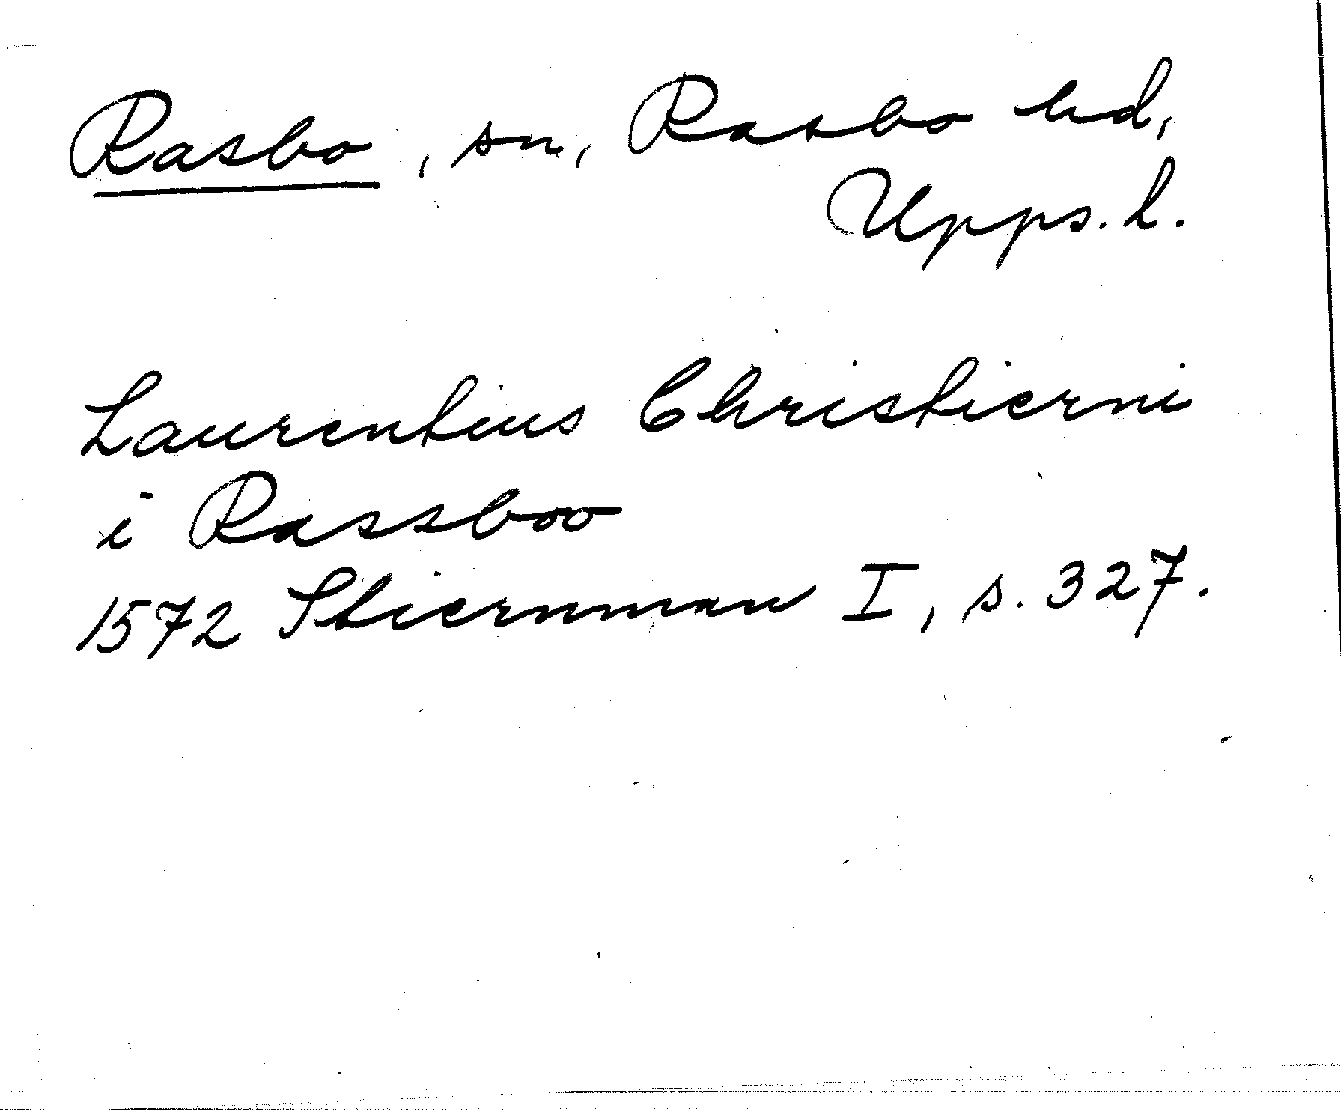 Rasbo, sn, Rasbo hd,
Upps. l.
Laurentius Christierni
i Rassboo
1572 Stiernman I, s. 327.